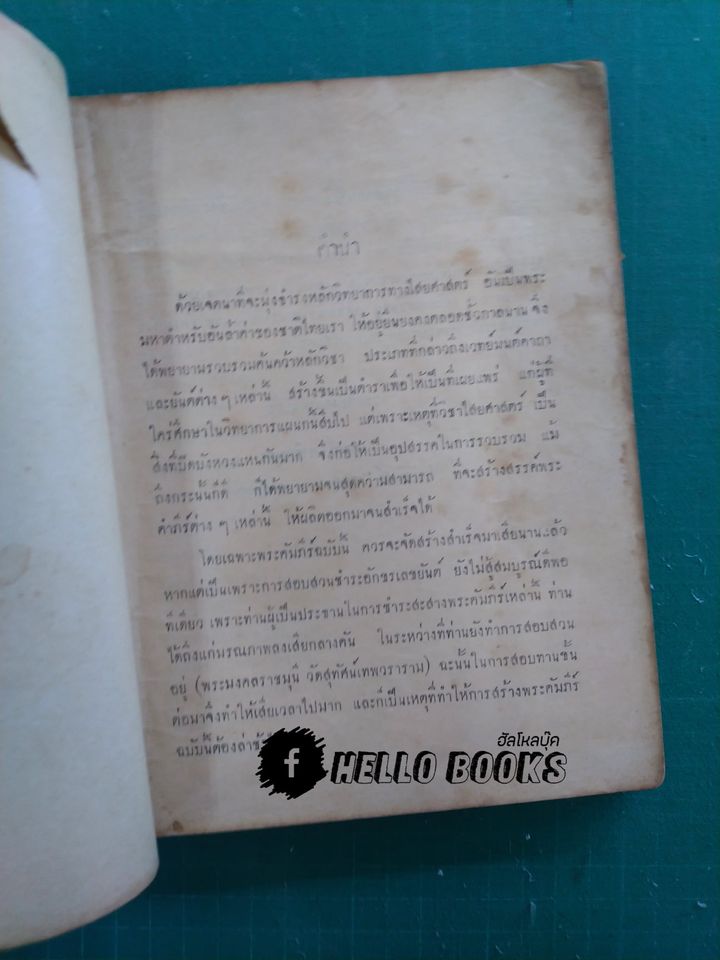 คำนำ
ด้วยเจตนาที่จะมุ่งธำรงหลักวิทยาการทางไสยศาสตร์ อันเป็นพระ
มหาตำหรับอันล้ำค่าของชาติไทยเรา ให้อยู่ยืนยงคงตลอดชั่วกาลนาน จึง
ได้พยายามรวบรวมค้นคว้าหลักวิชา ประเภทที่กล่าวถึงเวทย์มนต์คาถา
และยันต์ต่าง ๆ เหล่านี้ สร้างขึ้นเป็นตำราเพื่อให้เป็นที่เผยแพร่ แก่ผู้ที่
ใคร่ศึกษาในวิทยาการแผนกนี้สืบไป แต่เพราะเหตุที่วิชาไสยศาสตร์ เป็น
สิ่งที่ปิดบังหวงแหนกันมาก จึงก่อให้เป็นอุปสรรคในการรวบรวม แม้
ถึงกระนั้นก็ดี ก็ได้พยายามจนสุดความสามารถ ที่จะสร้างสรรค์พระ
คำภีร์ต่าง ๆ เหล่านี้ ให้ผลิตออกมาจนสำเร็จได้
โดยเฉพาะพระคัมภีร์ฉบับนี้ ควรจะจัดสร้างสำเร็จมาเสียนานแล้ว
หากแต่เป็นเพราะการสอบสวนชำระอักขรเลขยันต์ ยังไม่สู้สมบูรณ์ดีพอ
ทีเดียว เพราะท่านผู้เป็นประธานในการชำระสะสางพระคัมภีร์เหล่านี้ ท่าน
ได้ถึงแก่มรณภาพลงเสียกลางคัน ในระหว่างที่ท่านยังทำการสอบสวน
อยู่ (พระมงคลราชมุนี วัดสุทัศน์เทพวราราม) ฉะนั้นในการสอบทานชั้น
ต่อมาจึงทำให้เสียเวลาไปมาก และก็เป็นเหตุที่ทำให้การสร้างพระคัมภีร์
ฉบับนี้ต้องล่าช้า
ฮัลโหลบุ๊ค
f HELLO BOOKS